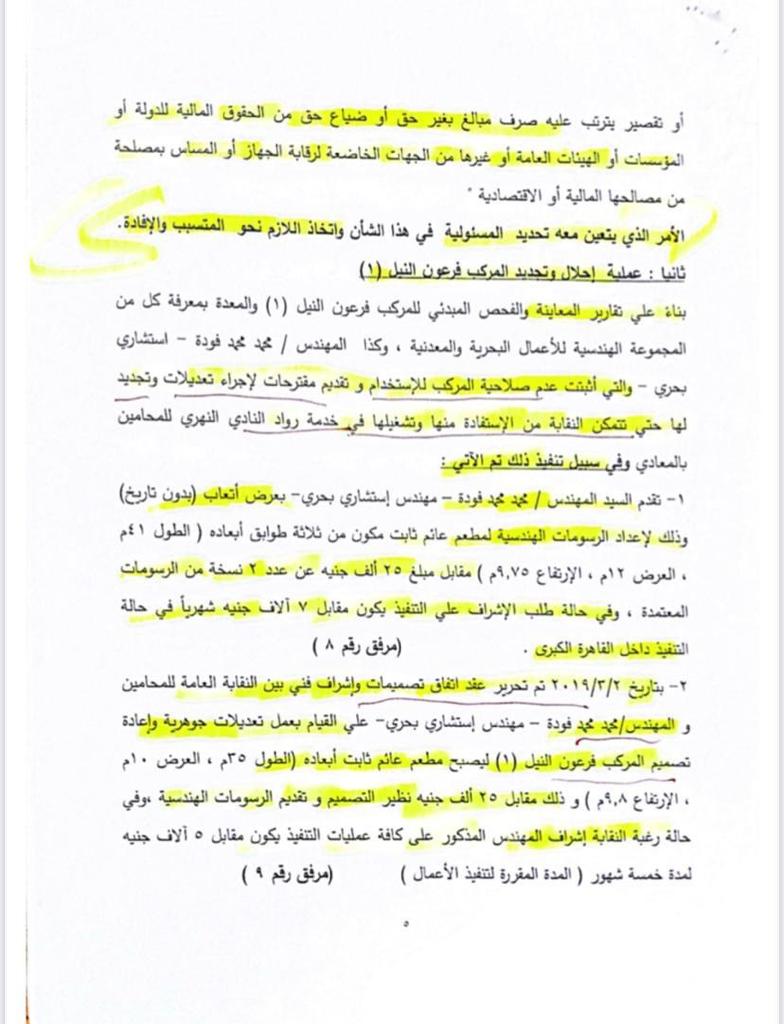 أو تقصير يترتب عليه صرف مبالغ بغير حق أو ضياع حق من الحقوق المالية للدولة أو
المؤسسات أو الهيئات العامة أو غيرها من الجهات الخاضعة لرقابة الجهاز أو المساس بمصلحة
من مصالحها المالية أو الاقتصادية "
الأمر الذي يتعين معه تحديد المسئولية في هذا الشأن واتخاذ اللازم نحو المتسبب والإفادة.
ثانيا : عملية إحلال وتجديد المركب فرعون النيل (١)
بناءً علي تقارير المعاينة والفحص المبدئي للمركب فرعون النيل (١) والمعدة بمعرفة كل من
المجموعة الهندسية للأعمال البحرية والمعدنية ، وكذا المهندس / محمد محمد فودة – استشاري
بحري – والتي أثبتت عدم صلاحية المركب للإستخدام و تقديم مقترحات لإجراء تعديلات وتجديد
لها حتي تتمكن النقابة من الإستفادة منها وتشغيلها في خدمة رواد النادي النهري للمحامين
بالمعادي وفي سبيل تنفيذ ذلك تم الآتي :
١- تقدم السيد المهندس / محمد محمد فودة – مهندس إستشاري بحري- بعرض أتعاب (بدون تاريخ)
وذلك لإعداد الرسومات الهندسية لمطعم عائم ثابت مكون من ثلاثة طوابق أبعاده ( الطول ٤١م
، العرض ١٢م ، الإرتفاع ٩,٧٥م ) مقابل مبلغ ٢٥ ألف جنيه عن عدد ٢ نسخة من الرسومات
المعتمدة ، وفي حالة طلب الإشراف علي التنفيذ يكون مقابل ٧ آلاف جنيه شهرياً في حالة
التنفيذ داخل القاهرة الكبرى . (مرفق رقم ٨ )
٢- بتاريخ ٢٠١٩/٣/٢ تم تحرير عقد اتفاق تصميمات وإشراف فني بين النقابة العامة للمحامين
و المهندس/محمد محمد فودة – مهندس إستشاري بحري- علي القيام بعمل تعديلات جوهرية وإعادة
تصميم المركب فرعون النيل (١) ليصبح مطعم عائم ثابت أبعاده (الطول ٣٥م ، العرض ١٠م
، الإرتفاع ٩,٨م ) و ذلك مقابل ٢٥ ألف جنيه نظير التصميم و تقديم الرسومات الهندسية ،وفي
حالة رغبة النقابة إشراف المهندس المذكور على كافة عمليات التنفيذ يكون مقابل ٥ آلاف جنيه
لمدة خمسة شهور ( المدة المقررة لتنفيذ الأعمال ) (مرفق رقم ٩ )
٥